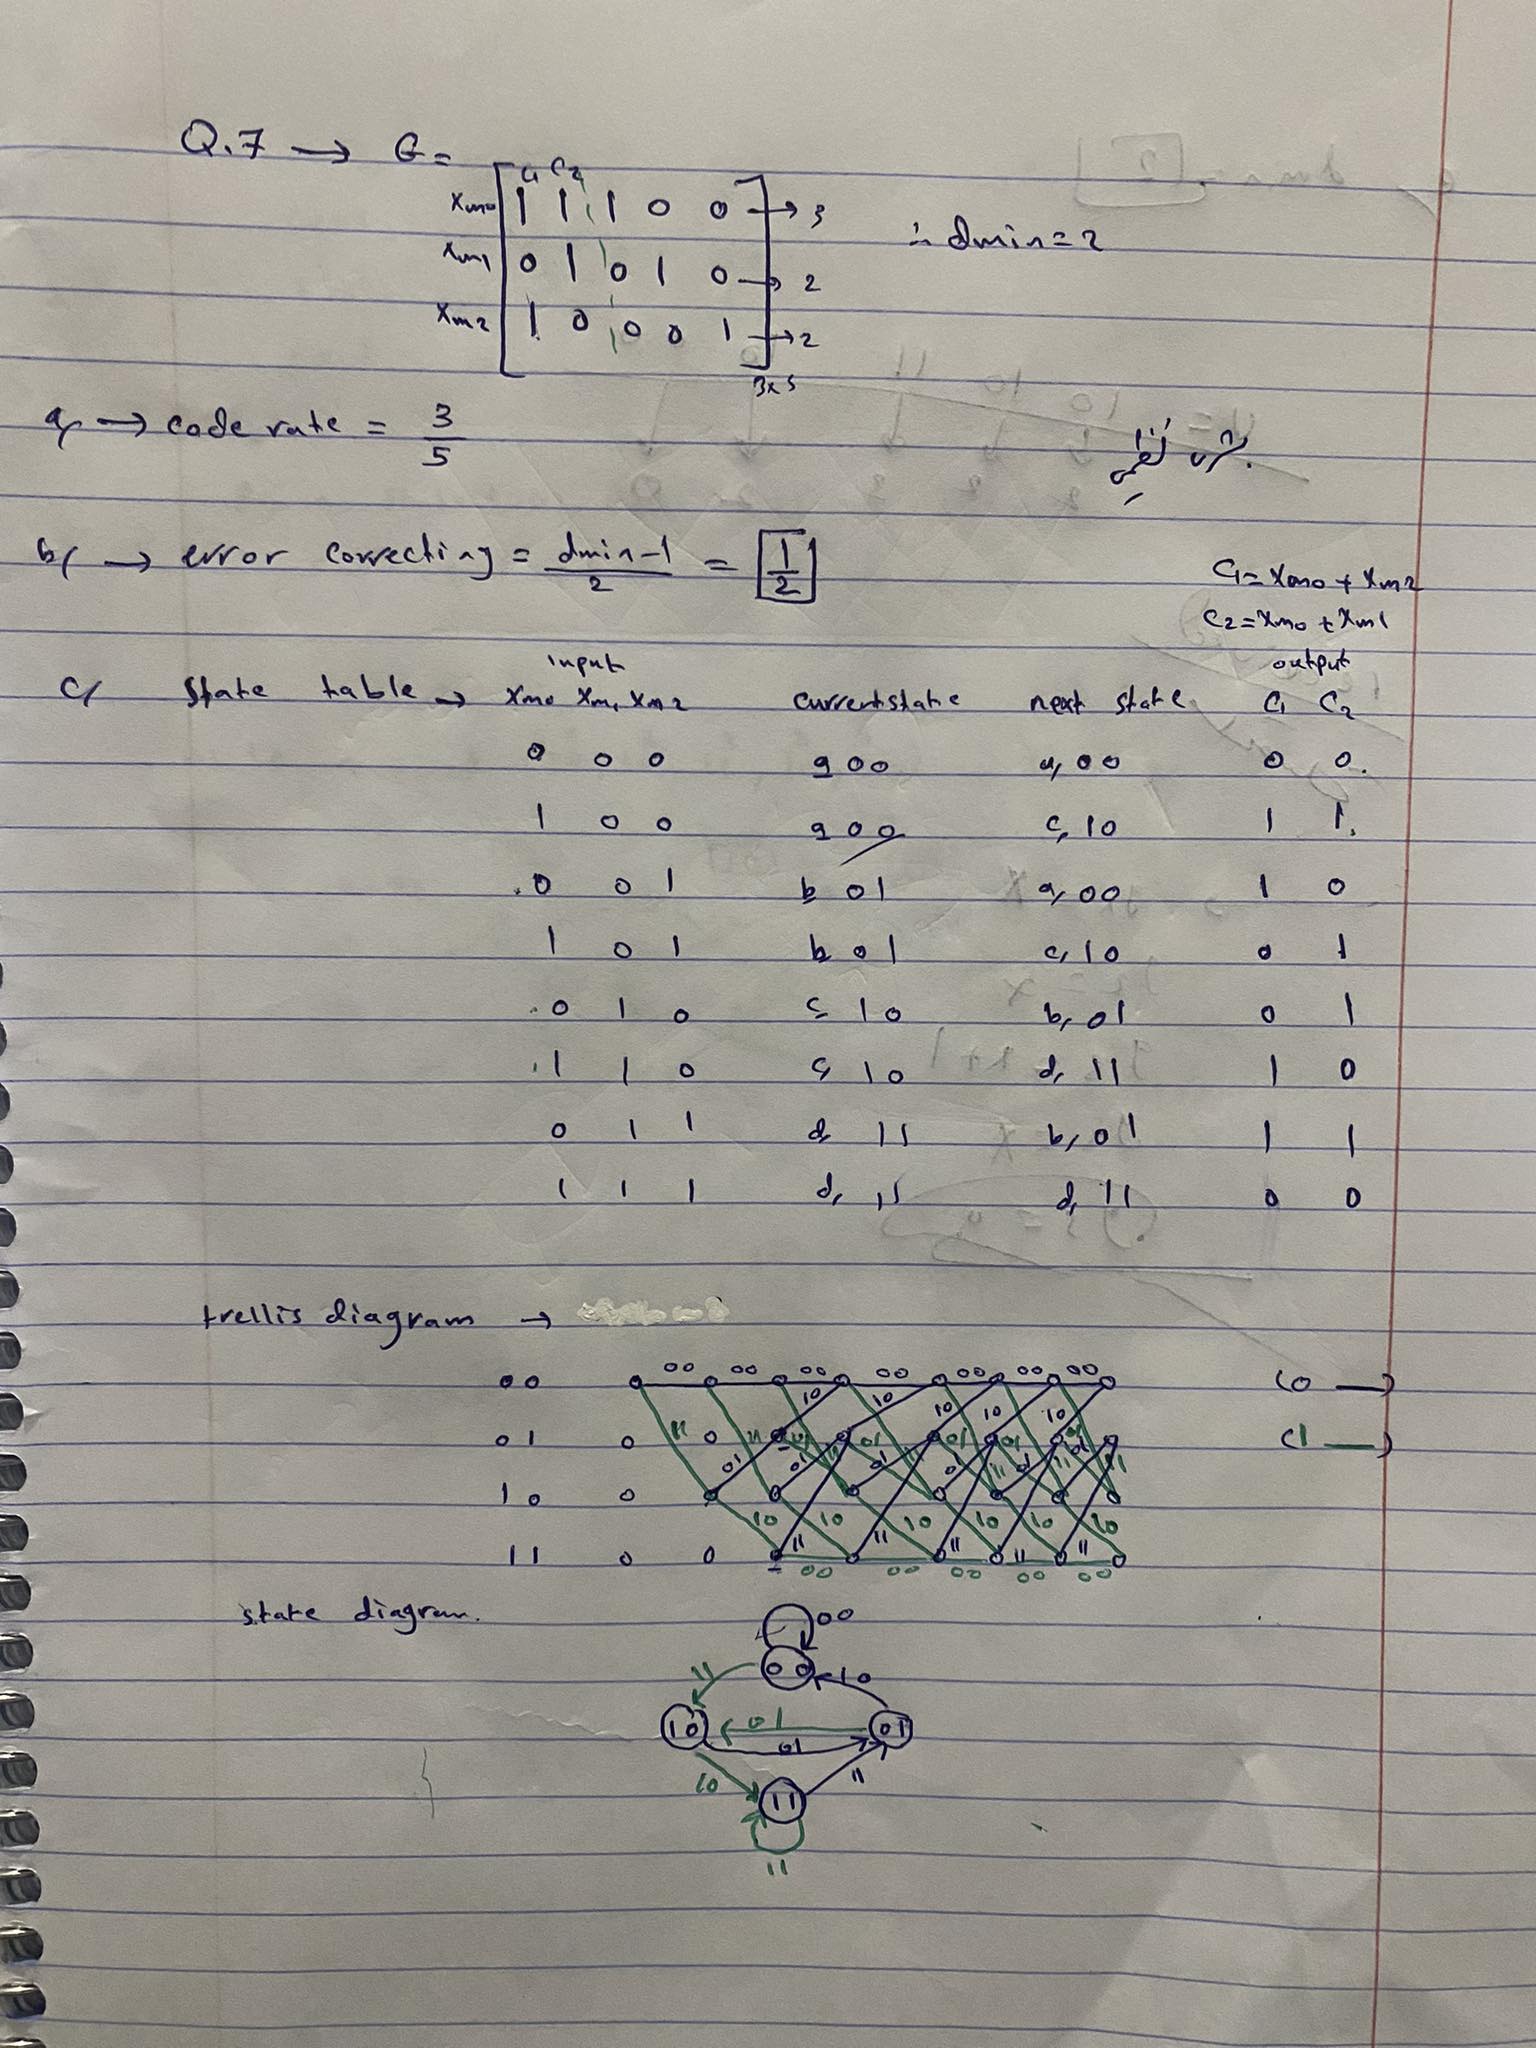 Q.7 → G =
C1 C2
xm0 1 1 1 0 0 → 3
∴ dmin = 2
xm1 0 1 0 1 0 → 2
xm2 1 0 0 0 1 → 2
3x5
a, → code rate = 3/5
b, → error correcting = dmin-1/2 = 1/2
C1 = xm0 + xm2
C2 = xm0 + xm1
input output
c, state table → xm0 xm1 xm2 current state next state C1 C2
0 0 0 a 00 a, 00 0 0.
1 0 0 a 00 c, 10 1 1.
.0 0 1 b 01 a, 00 1 0
1 0 1 b 01 c, 10 0 1
.0 1 0 c 10 b, 01 0 1
.1 1 0 c, 10 d, 11 1 0
0 1 1 d 11 b, 01 1 1
1 1 1 d, 11 d, 11 0 0
trellis diagram →
00 00 00 00 00 00 00
00 (0 —)
10 10 10 10 10
01 (1 —)
11 01 01 01 01 01
10
10 10 10 10 10 10
11 11 11 11 11 11
00 00 00 00 00
state diagram.
00
00
11 10
10 01 01
01
10 11
11
11